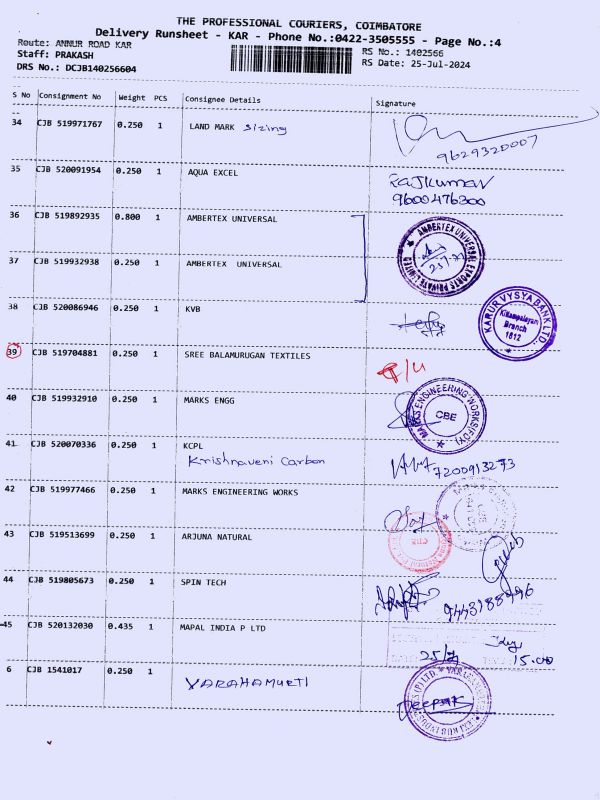 THE PROFESSIONAL COURIERS, COIMBATORE
Delivery Runsheet - KAR - Phone No.:0422-3505555 - Page No.:4
Route: ANNUR ROAD KAR
Staff: PRAKASH
DRS No.: DCJB140256604
RS No.: 1402566
RS Date: 25-Jul-2024
S No Consignment No Weight PCS Consignee Details Signature
34 CJB 519971767 0.250 1 LAND MARK Sizing
9629320007
35 CJB 520091954 0.250 1 AQUA EXCEL Rajkumar
9600476300
36 CJB 519892935 0.800 1 AMBERTEX UNIVERSAL
AMBERTEX UNIVERSAL EXPORTS PRIVATE LIMITED
37 CJB 519932938 0.250 1 AMBERTEX UNIVERSAL
38 CJB 520086946 0.250 1 KVB
KARUR VYSYA BANK LTD.
Branch
1612
39 CJB 519704881 0.250 1 SREE BALAMURUGAN TEXTILES
40 CJB 519932910 0.250 1 MARKS ENGG
MARKS ENGINEERING WORKS
CBE
41 CJB 520070336 0.250 1 KCPL
Krishnaveni Carbon
7200913273
42 CJB 519977466 0.250 1 MARKS ENGINEERING WORKS
43 CJB 519513699 0.250 1 ARJUNA NATURAL
44 CJB 519805673 0.250 1 SPIN TECH
45 CJB 520132030 0.435 1 MAPAL INDIA P LTD
25/7 15.00
6 CJB 1541017 0.250 1 VARAHAMURTI
Deepak